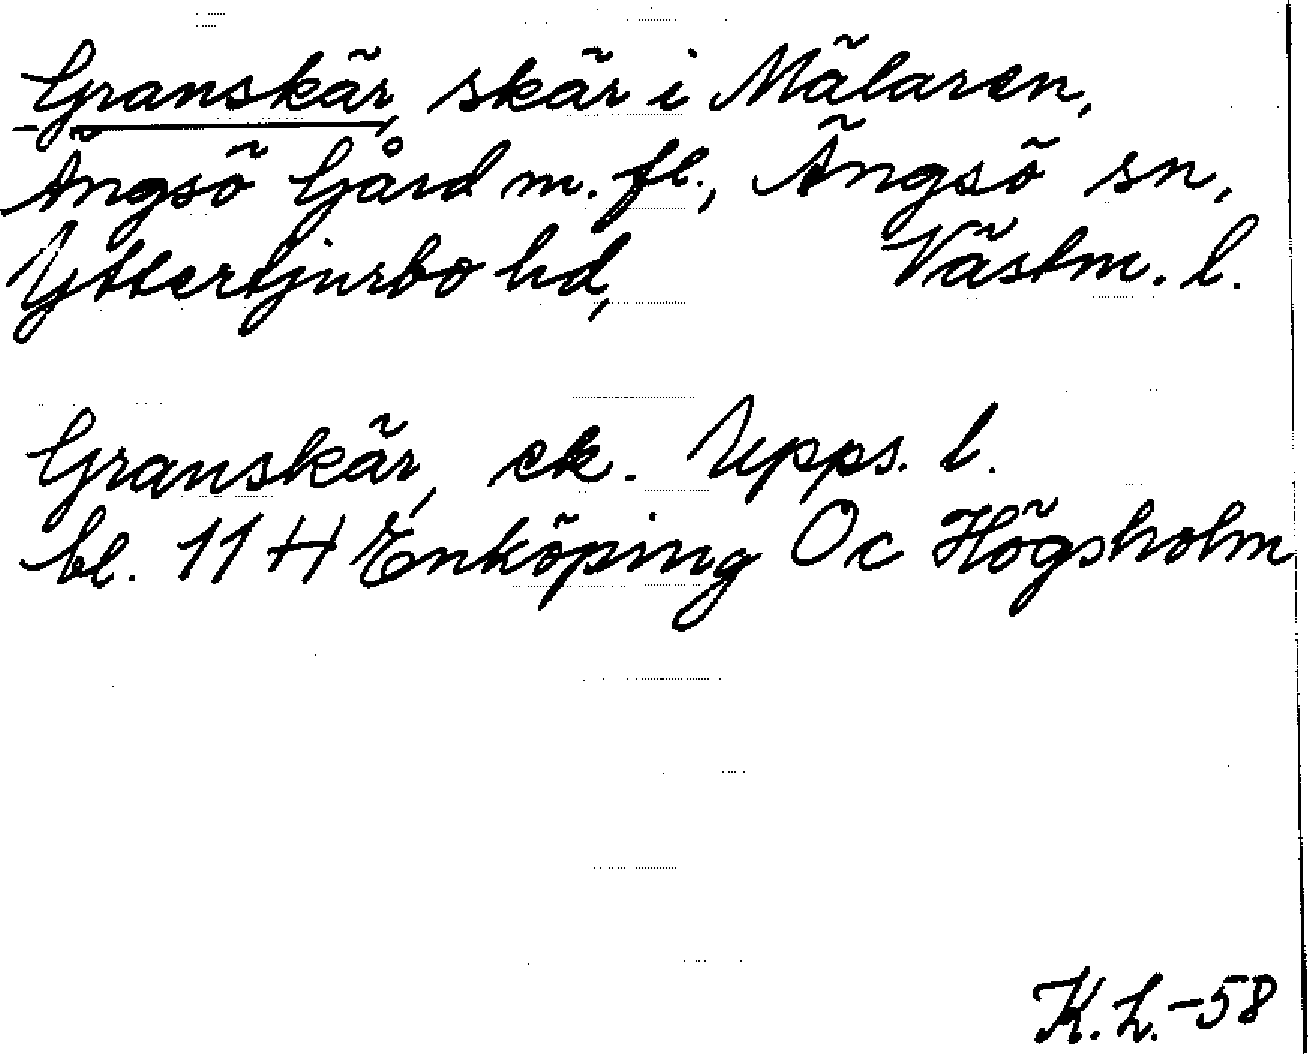 Granskär, skär i Mälaren,
Ängsö Gård m. fl., Ängsö sn,
Yttertjurbo hd, Västm. l.
Granskär, ek. Upps. l.
bl. 11 H Enköping Oc Högsholm
K. L. -58